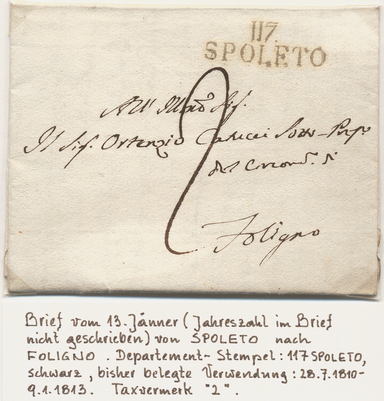 117
SPOLETO
All'
Il Sig. Ortenzio
2
Foligno
Brief vom 13. Jänner (Jahreszahl im Brief
nicht geschrieben) von SPOLETO nach
FOLIGNO. Departement-Stempel: 117 SPOLETO,
schwarz, bisher belegte Verwendung: 28.7.1810-
9.1.1813. Taxvermerk "2".